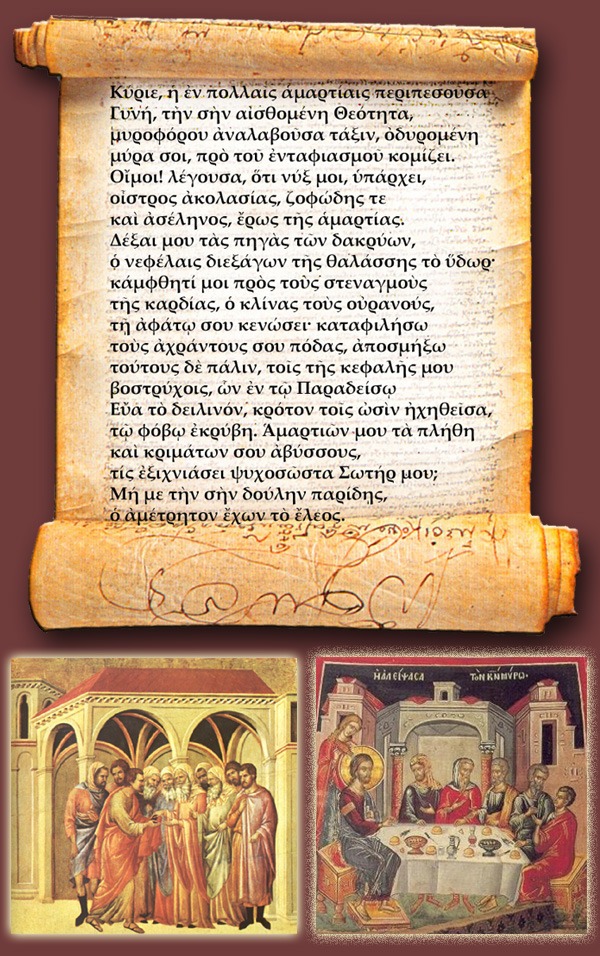 Κύριε, ἡ ἐν πολλαῖς ἁμαρτίαις περιπεσοῦσα
Γυνή, τὴν σὴν αἰσθομένη Θεότητα,
μυροφόρου ἀναλαβοῦσα τάξιν, ὀδυρομένη
μύρα σοι, πρὸ τοῦ ἐνταφιασμοῦ κομίζει.
Οἴμοι! λέγουσα, ὅτι νύξ μοι, ὑπάρχει,
οἶστρος ἀκολασίας, ζοφώδης τε
καὶ ἀσέληνος, ἔρως τῆς ἁμαρτίας.
Δέξαι μου τὰς πηγὰς τῶν δακρύων,
ὁ νεφέλαις διεξάγων τῆς θαλάσσης τὸ ὕδωρ·
κάμφθητί μοι πρὸς τοὺς στεναγμοὺς
τῆς καρδίας, ὁ κλίνας τοὺς οὐρανούς,
τῇ ἀφάτῳ σου κενώσει· καταφιλήσω
τοὺς ἀχράντους σου πόδας, ἀποσμήξω
τούτους δὲ πάλιν, τοῖς τῆς κεφαλῆς μου
βοστρύχοις, ὧν ἐν τῷ Παραδείσῳ
Εὔα τὸ δειλινόν, κρότον τοῖς ὠσὶν ἠχηθεῖσα,
τῷ φόβῳ ἐκρύβη. Ἁμαρτιῶν μου τὰ πλήθη
καὶ κριμάτων σου ἀβύσσους,
τίς ἐξιχνιάσει ψυχοσῶστα Σωτήρ μου;
Μή με τὴν σὴν δούλην παρίδης,
ὁ ἀμέτρητον ἔχων τὸ ἔλεος.
Η ΑΛΕΙΨΑΣΑ ΤΟΝ ΚΝ ΜΥΡΩ.